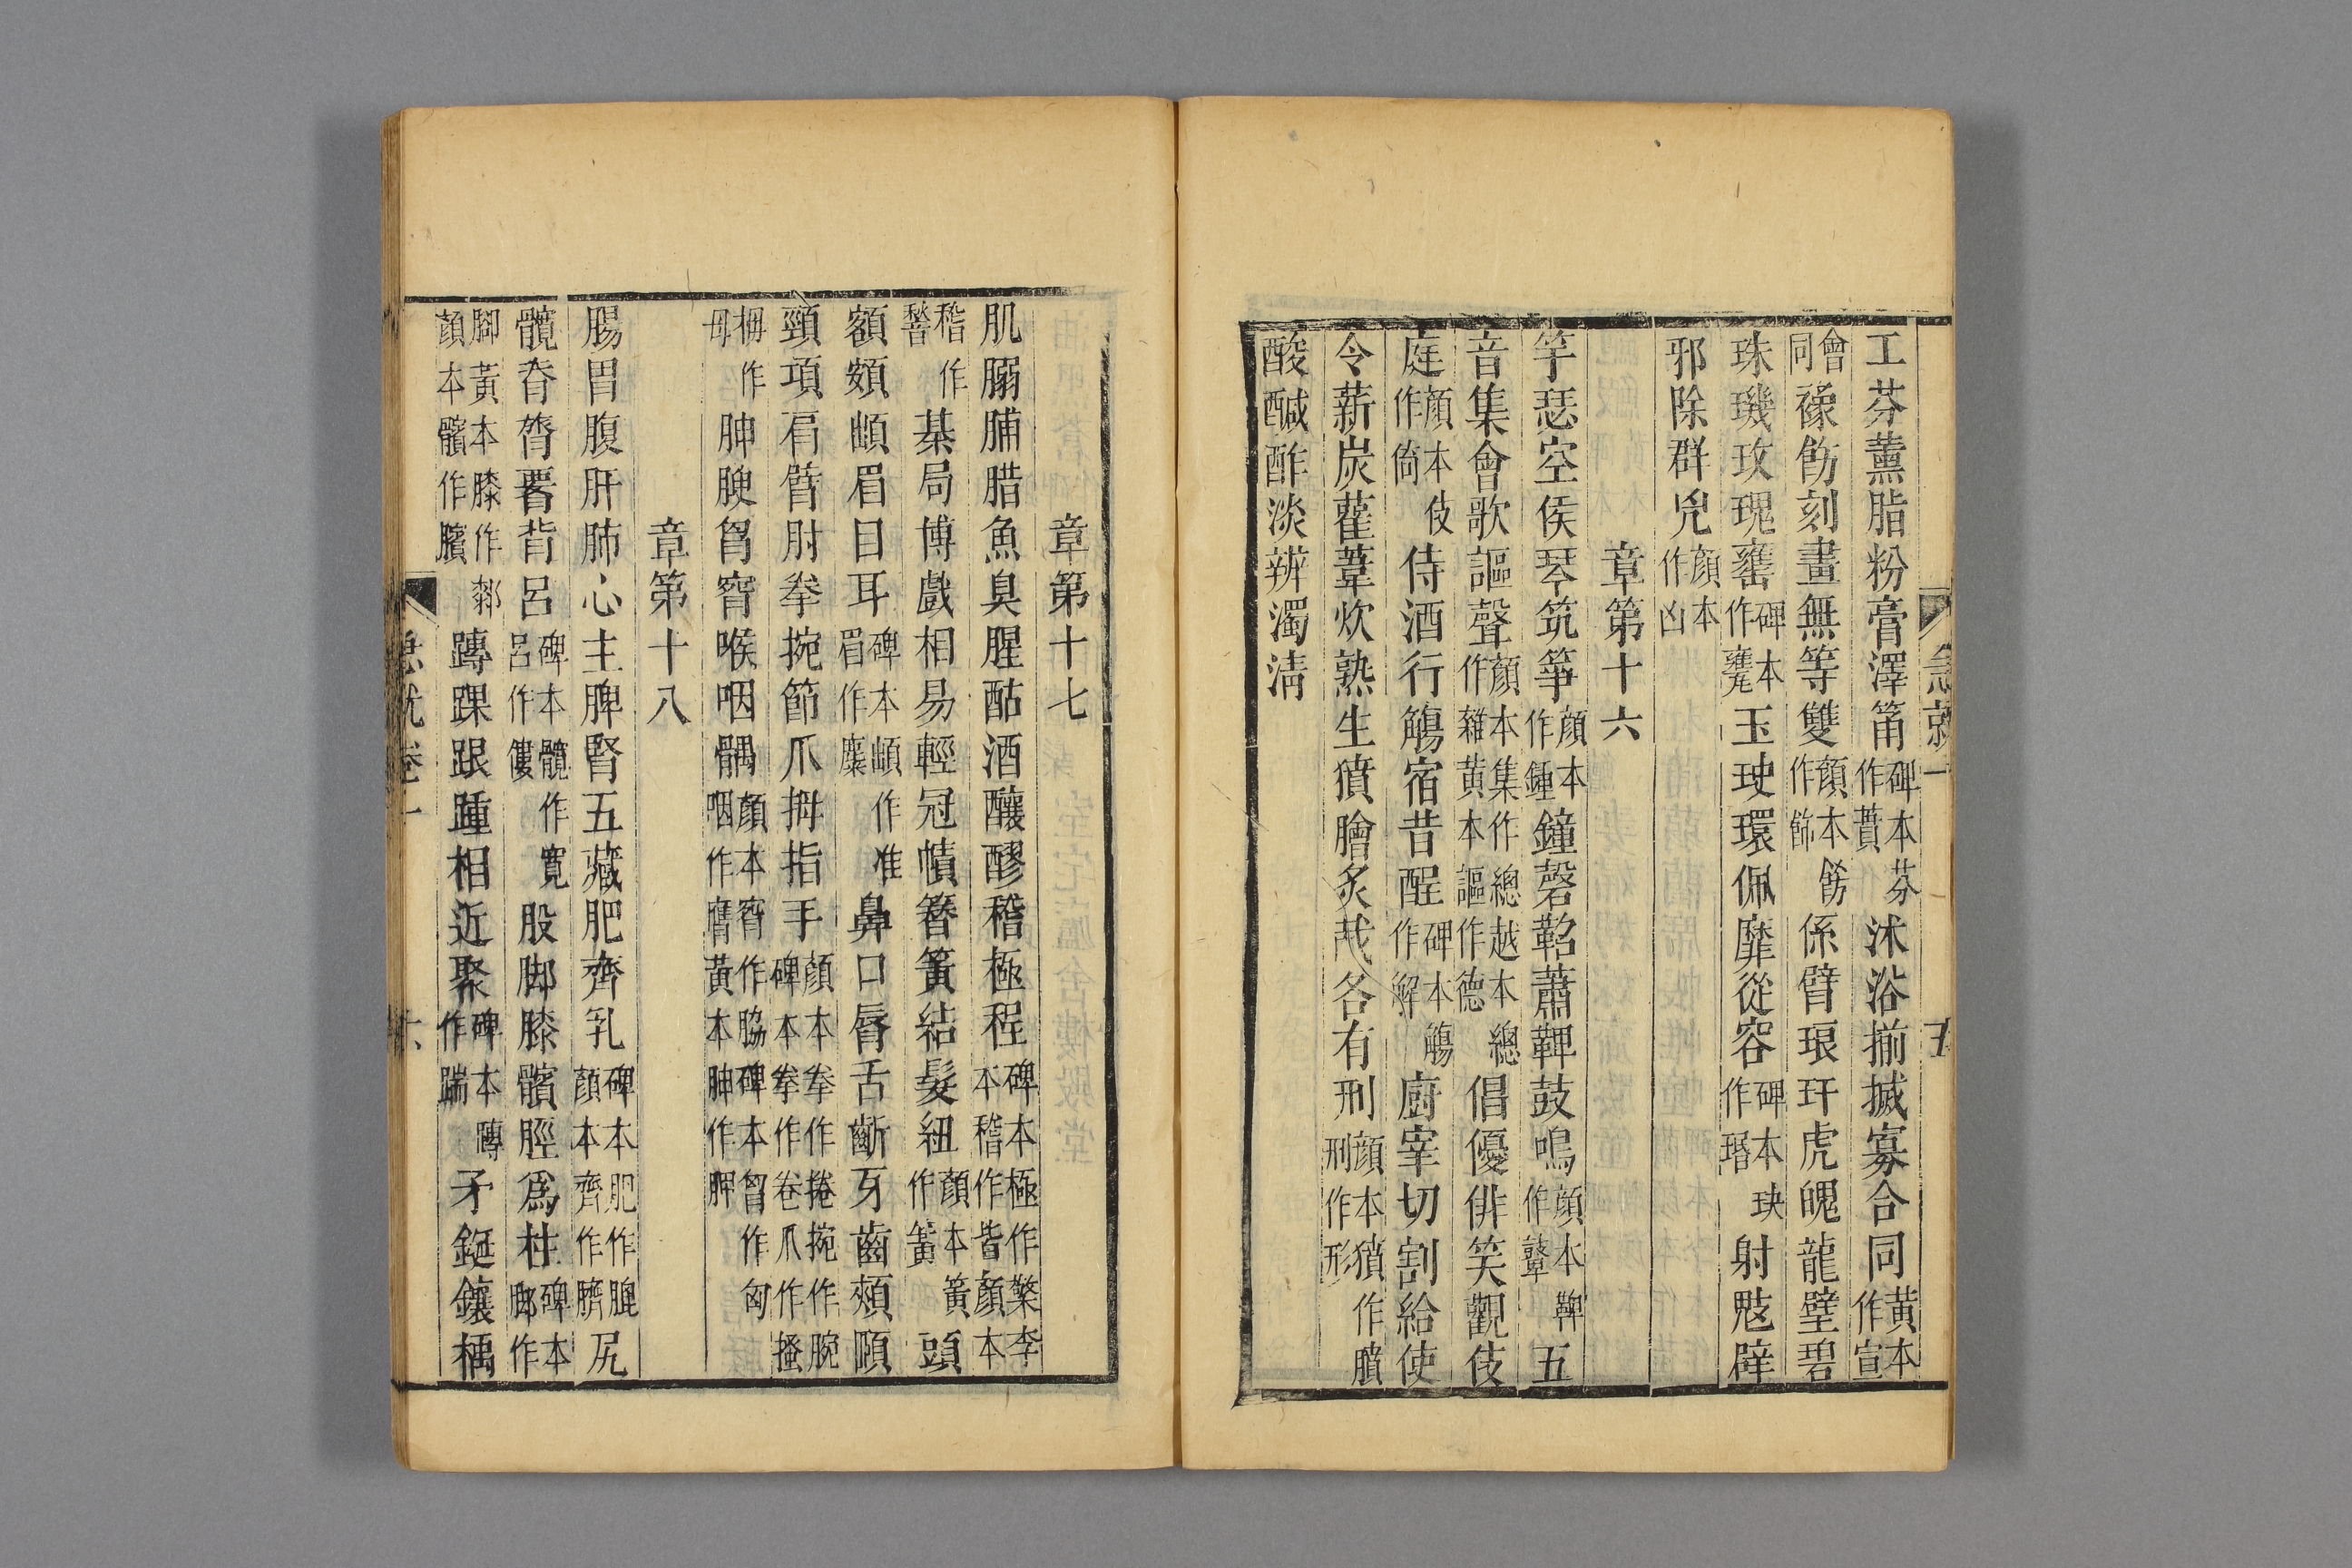 急就一 五
工芬薰脂粉膏澤筩碑本芬作蕡沐浴揃搣寡合同黃本作宣
會同襐飭刻畫無等雙顏本飭作飾係臂琅玕虎魄龍璧碧
珠璣玫瑰罋碑本作甕玉玦環佩靡從容碑本玦作瑎射鬾辟
邪除群兇顏本作凶
章第十六
竽瑟空侯琴筑箏顏本作鍾鐘磬鞀蕭鞞鼓鳴顏本鞞作鼙五
音集會歌謳聲顏本集作總越本總作雜黃本謳作德倡優俳笑觀伎
庭顏本伎作倚侍酒行觴宿昔酲碑本觴作解廚宰切割給使
令薪炭雚葦炊熟生獖膾炙胾各有刑顏本獖作膹刑作形
酸醎酢淡辨濁淸
章第十七
肌䐧脯腊魚臭腥酤酒釀醪稽極程碑本極作檠李本稽作皆顏本
稽作䭫棊局博戲相易輕冠幘簪簧結髮紐顏本簧作簀頭
額頞䪼眉目耳碑本䪼作准眉作麋鼻口脣舌齗牙齒頰頤
頸項肩臂肘拳捥節爪拇指手顏本拳作捲捥作腕碑本拳作卷爪作搔
栂作母胂腴匈䏿喉咽髃顏本䏿作脇碑本匈作匃咽作膺黃本胂作胛
章第十八
腸胃腹肝肺心主脾腎五藏肥齊乳碑本肥作腗顏本齊作臍尻
髖脊膂䙅背呂碑本髖作寛呂作僂股脚膝髕脛爲柱碑本脚作
腳黃本膝作厀顏本髕作臏䠙踝跟踵相近聚碑本䠙作踹矛鋋鑲楀
急就卷一 六